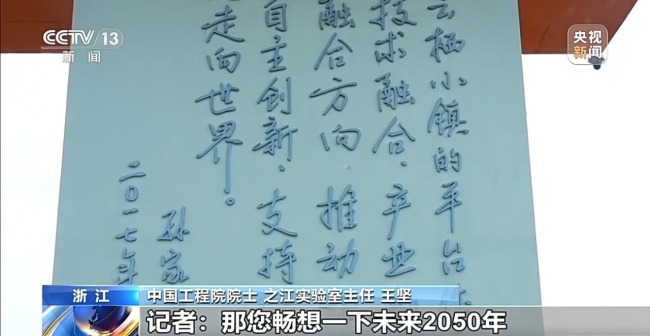 CCTV 13
新闻
央视
新闻
云栖小镇的平台
技术融合、产业
融合方向 推动
自主创新、支持
走向世界。
孙家
二〇一七年
浙江
中国工程院院士 之江实验室主任 王坚
记者：那您畅想一下未来2050年